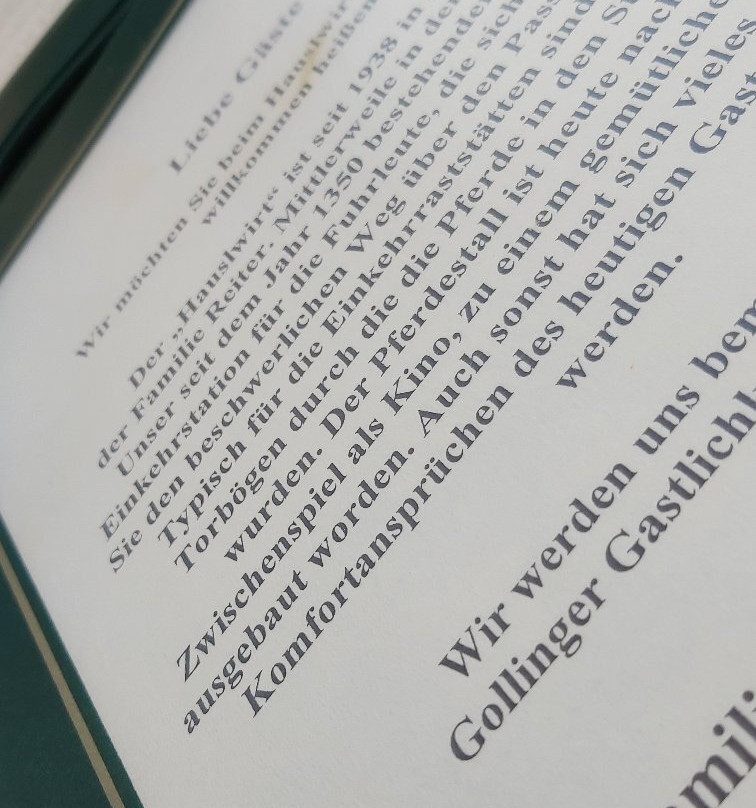 Liebe Gäste
Wir möchten Sie beim Hauslwir
willkommen heißen
Der „Hauslwirt“ ist seit 1938 in
der Familie Reiter. Mittlerweile in de
Unser seit dem Jahr 1350 bestehende
Einkehrstation für die Fuhrleute, die sich
Sie den beschwerlichen Weg über den Pass
Typisch für die Einkehrraststätten sind
Torbögen durch die die Pferde in den St
wurden. Der Pferdestall ist heute nach
Zwischenspiel als Kino, zu einem gemütliche
ausgebaut worden. Auch sonst hat sich vieles
Komfortansprüchen des heutigen Gast
werden.
Wir werden uns bem
Gollinger Gastlichk
mili